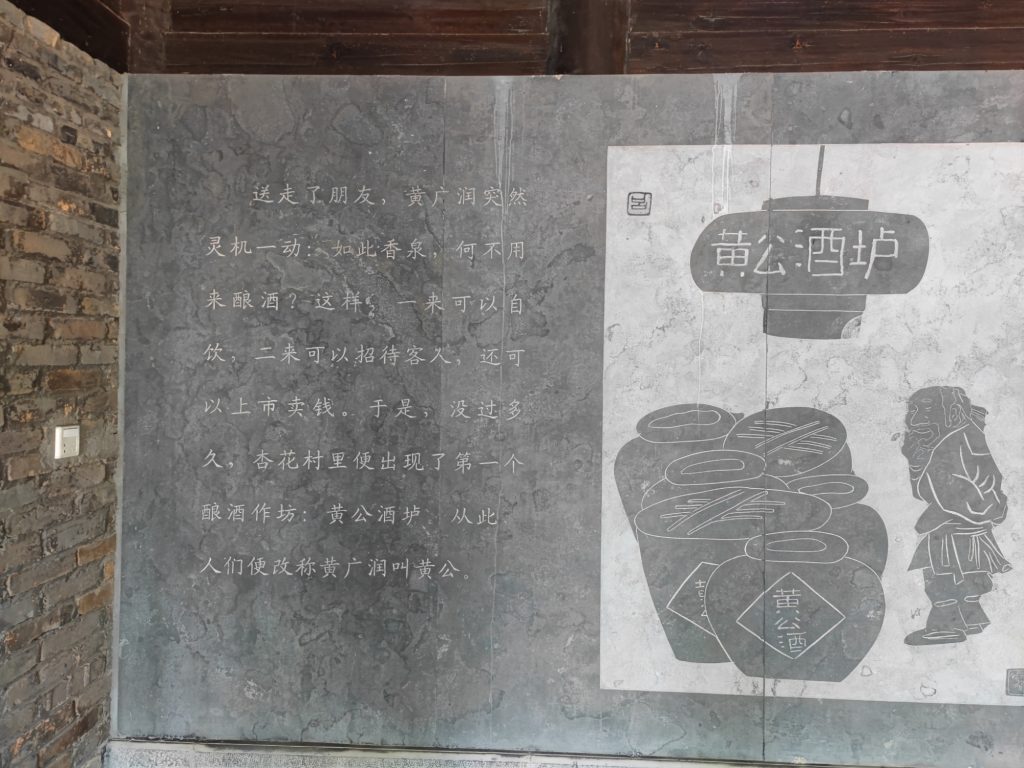 送走了朋友，黄广润突然
灵机一动：如此香泉，何不用
来酿酒？这样，一来可以自
饮，二来可以招待客人，还可
以上市卖钱。于是，没过多
久，杏花村里便出现了第一个
酿酒作坊：黄公酒垆 从此
人们便改称黄广润叫黄公。
黄公酒垆
黄公酒